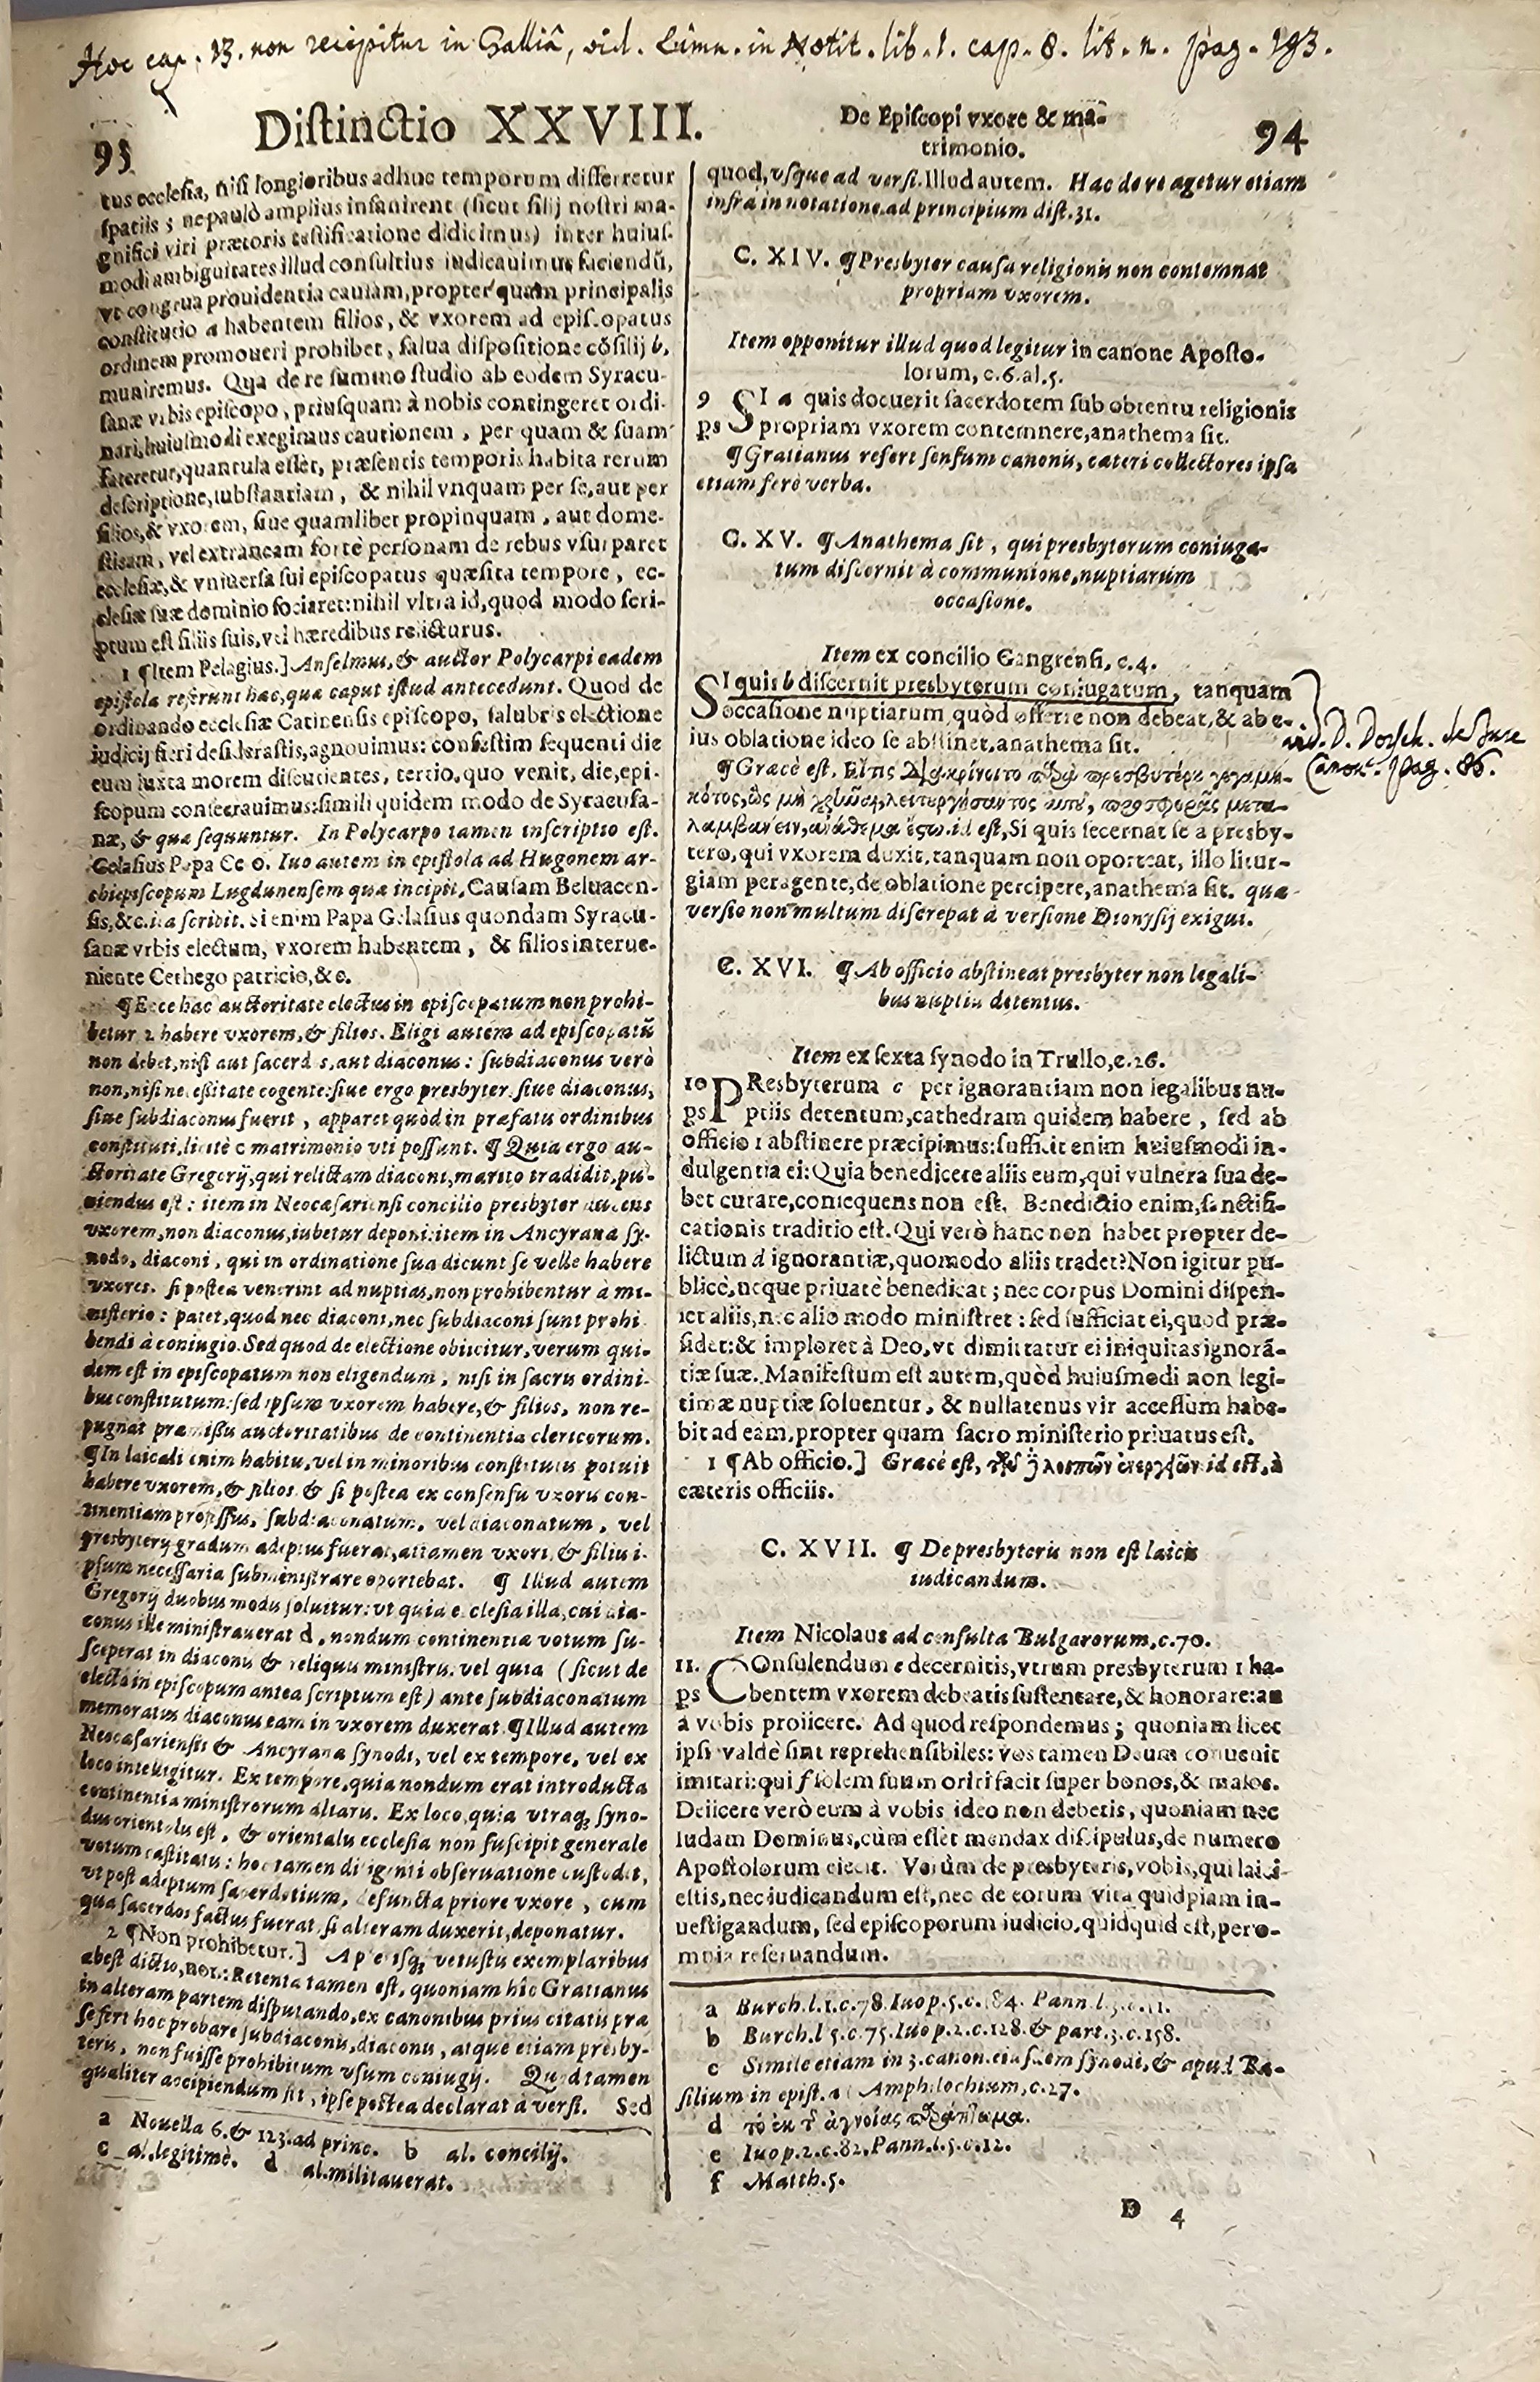 Hoc cap. 13. non recipitur in Galliâ, vid. Limn. in Notit. lib. 1. cap. 8. lit. n. pag. 193.
93
Diſtinctio XXVIII.
De Epiſcopi vxore & mā-
trimonio.
94
tus eccleſia, niſi longioribus adhuc temporum differretur
ſpatiis; ne paulò amplius inſanirent (ſicut filij noſtri ma-
gnifici viri prætoris teſtificatione didicimus) inter huiuſ-
modi ambiguitates illud conſultius iudicauimus faciendū,
vt congrua prouidentia cautam, propter quam principalis
conſtitutio a habentem filios, & vxorem ad epiſcopatus
ordinem promoueri prohibet, ſalua diſpoſitione cōſilij b,
muniremus. Qua de re ſummo ſtudio ab eodem Syracu-
ſanæ vrbis epiſcopo, priuſquam à nobis contingeret ordi-
nari, huiuſmodi exegimus cautionem, per quam & ſuam
fateretur, quantula eſſet, præſentis temporis habita rerum
deſcriptione, ſubſtantiam, & nihil vnquam per ſe, aut per
filios, & vxorem, ſiue quamlibet propinquam, aut dome-
ſticam, vel extraneam fortè perſonam de rebus vſurparet
eccleſiæ, & vniuerſa ſui epiſcopatus quæſita tempore, ec-
cleſiæ ſuæ dominio ſociaret: nihil vltra id, quod modo ſcri-
ptum eſt filiis ſuis, vel hæredibus relicturus.
1 ¶Item Pelagius.] Anſelmus, & auctor Polycarpi eadem
epiſtola referunt hæc, quæ caput iſtud antecedunt. Quod de
ordinando eccleſiæ Catinenſis epiſcopo, ſalubris electione
iudicij fieri deſideraſtis, agnouimus: confeſtim ſequenti die
eum iuxta morem diſcutientes, tertio, quo venit, die, epi-
ſcopum conſecrauimus: ſimili quidem modo de Syracuſa-
næ, & quæ ſequuntur. In Polycarpo tamen inſcriptio eſt.
Gelaſius Papa Ce o. Iuo autem in epiſtola ad Hugonem ar-
chiepiſcopum Lugdunenſem quæ incipit, Cauſam Beluacen-
ſis, &c. ita ſcribit. Si enim Papa Gelaſius quondam Syracu-
ſanæ vrbis electum, vxorem habentem, & filios interue-
niente Cethego patricio, &c.
¶Ecce hac auctoritate electus in epiſcopatum non prohi-
betur 2 habere vxorem, & filios. Eligi autem ad epiſcopatū
non debet, niſi aut ſacerd s, aut diaconus: ſubdiaconus verò
non, niſi neceſſitate cogente: ſiue ergo presbyter, ſiue diaconus,
ſiue ſubdiaconus fuerit, apparet quòd in præfatis ordinibus
conſtituti, licitè c matrimonio vti poſſunt. ¶ Quia ergo au-
ctoritate Gregorij, qui relictam diaconi, marito tradidit, pu-
niendus eſt: item in Neocæſarienſi concilio presbyter ducens
vxorem, non diaconus, iubetur deponi: item in Ancyrana ſy-
nodo, diaconi, qui in ordinatione ſua dicunt ſe velle habere
vxores. ſi poſtea venerint ad nuptias, non prohibentur à mi-
niſterio: patet, quod nec diaconi, nec ſubdiaconi ſunt prohi
bendi à coniugio. Sed quod de electione obiicitur, verum qui-
dem eſt in epiſcopatum non eligendum, niſi in ſacris ordini-
bus conſtitutum: ſed ipſum vxorem habere, & filios, non re-
pugnat præmiſſis auctoritatibus de continentia clericorum.
¶In laicali enim habitu, vel in minoribus conſtitutus potuit
habere vxorem, & filios. & ſi poſtea ex conſenſu vxoris con-
tinentiam profeſſus, ſubdiaconatum, vel diaconatum, vel
presbyterij gradum adeptus fuerat, attamen vxori, & filiis i-
pſum neceſſaria ſubminiſtrare oportebat. ¶ Illud autem
Gregorij duobus modis ſoluitur: vt quia eccleſia illa, cui dia-
conus ille miniſtrauerat d, nondum continentiæ votum ſu-
ſceperat in diaconis & reliquis miniſtris. vel quia (ſicut de
electo in epiſcopum antea ſcriptum eſt) ante ſubdiaconatum
memoratus diaconus eam in vxorem duxerat. ¶Illud autem
Neocæſarienſis & Ancyrana ſynodi, vel ex tempore, vel ex
loco intelligitur. Ex tempore, quia nondum erat introducta
continentia miniſtrorum altaris. Ex loco, quia vtraq; ſyno-
dus orientalis eſt, & orientalis eccleſia non ſuſcipit generale
votum caſtitatis: hoc tamen diligenti obſeruatione cuſtodit,
vt poſt adeptum ſacerdotium, defuncta priore vxore, cum
qua ſacerdos factus fuerat, ſi alteram duxerit, deponatur.
2 ¶Non prohibetur.] A pleriſq; vetuſtis exemplaribus
abeſt dictio, non.: Retenta tamen eſt, quoniam hîc Gratianus
in alteram partem diſputando, ex canonibus prius citatis præ
ſe fert hoc probare ſubdiaconis, diaconis, atque etiam presby-
teris, non fuiſſe prohibitum vſum coniugij. Quod tamen
qualiter accipiendum ſit, ipſe poſtea declarat à verſi. Sed
a Nouella 6. & 123. ad princ. b al. concilij.
c al. legitimè. d al. militauerat.
quod, vſque ad verſi. Illud autem. Hac de re agetur etiam
infra in notatione ad principium diſt. 31.
C. XIV. ¶Presbyter cauſa religionis non contemnat
propriam vxorem.
Item opponitur illud quod legitur in canone Apoſto-
lorum, c. 6. al. 5.
9 SI a quis docuerit ſacerdotem ſub obtentu religionis
ps propriam vxorem contemnere, anathema ſit.
¶Gratianus refert ſenſum canonis, cæteri collectores ipſa
etiam ferè verba.
C. XV. ¶ Anathema ſit, qui presbyterum coniuga-
tum diſcernit à communione, nuptiarum
occaſione.
Item ex concilio Gangrenſi, c. 4.
SI quis b diſcernit presbyterum coniugatum, tanquam
occaſione nuptiarum, quòd offerre non debeat, & ab e-
ius oblatione ideo ſe abſtinet, anathema ſit.
vid. D. Dorſch. de Jure
Canon. pag. 86.
¶Græcè eſt. Εἴ τις διακρίνοιτο παρὰ πρεσβυτέρου γεγαμη-
κότος, ὡς μὴ χρῆναι, λειτουργήσαντος αὐτοῦ, προσφορᾶς μετα-
λαμβάνειν, ἀνάθεμα ἔστω. id eſt, Si quis ſecernat ſe a presby-
tero, qui vxorem duxit, tanquam non oporteat, illo litur-
giam peragente, de oblatione percipere, anathema ſit. quæ
verſio non multum diſcrepat à verſione Dionyſij exigui.
C. XVI. ¶ Ab officio abſtineat presbyter non legali-
bus nuptiis detentus.
Item ex ſexta ſynodo in Trullo, c. 26.
10 PResbyterum c per ignorantiam non legalibus nu-
ps ptiis detentum, cathedram quidem habere, ſed ab
officio 1 abſtinere præcipimus: ſufficit enim huiuſmodi in-
dulgentia ei: Quia benedicere aliis eum, qui vulnera ſua de-
bet curare, conſequens non eſt. Benedictio enim, ſanctifi-
cationis traditio eſt. Qui verò hanc non habet propter de-
lictum d ignorantiæ, quomodo aliis tradet? Non igitur pu-
blicè, neque priuatè benedicat; nec corpus Domini diſpen-
ſet aliis, nec alio modo miniſtret: ſed ſufficiat ei, quod præ-
ſidet: & imploret à Deo, vt dimittatur ei iniquitas ignorā-
tiæ ſuæ. Manifeſtum eſt autem, quòd huiuſmodi non legi-
timæ nuptiæ ſoluentur, & nullatenus vir acceſſum habe-
bit ad eam, propter quam ſacro miniſterio priuatus eſt.
1 ¶Ab officio.] Græcè eſt, τῶν δὲ λοιπῶν ἐνεργειῶν id eſt, à
cæteris officiis.
C. XVII. ¶ De presbyteris non eſt laicis
iudicandum.
Item Nicolaus ad conſulta Bulgarorum, c. 70.
11. COnſulendum e decernitis, vtrum presbyterum 1 ha-
ps bentem vxorem debeatis ſuſtentare, & honorare: an
à vobis proiicere. Ad quod reſpondemus; quoniam licet
ipſi valdè ſint reprehenſibiles: vos tamen Deum conuenit
imitari: qui f ſolem ſuum oriri facit ſuper bonos, & malos.
Deiicere verò eum à vobis ideo non debetis, quoniam nec
Iudam Dominus, cùm eſſet mendax diſcipulus, de numero
Apoſtolorum eiecit. Verùm de presbyteris, vobis, qui laici
eſtis, nec iudicandum eſt, nec de eorum vita quidpiam in-
ueſtigandum, ſed epiſcoporum iudicio, quidquid eſt, per o-
mnia reſeruandum.
a Burch. l. 1. c. 78. Iuo p. 5. c. 184. Pann. l. 3. c. 11.
b Burch. l 5. c. 75. Iuo p. 2. c. 128. & part. 3. c. 158.
c Simile etiam in 3. canon. eiuſdem ſynodi, & apud Ba-
ſilium in epiſt. ad Amphilochium, c. 27.
d τὸ ἐκ τῆς ἀγνοίας παράπτωμα.
e Iuo p. 2. c. 82. Pann. l. 5. c. 12.
f Matth. 5.
D 4